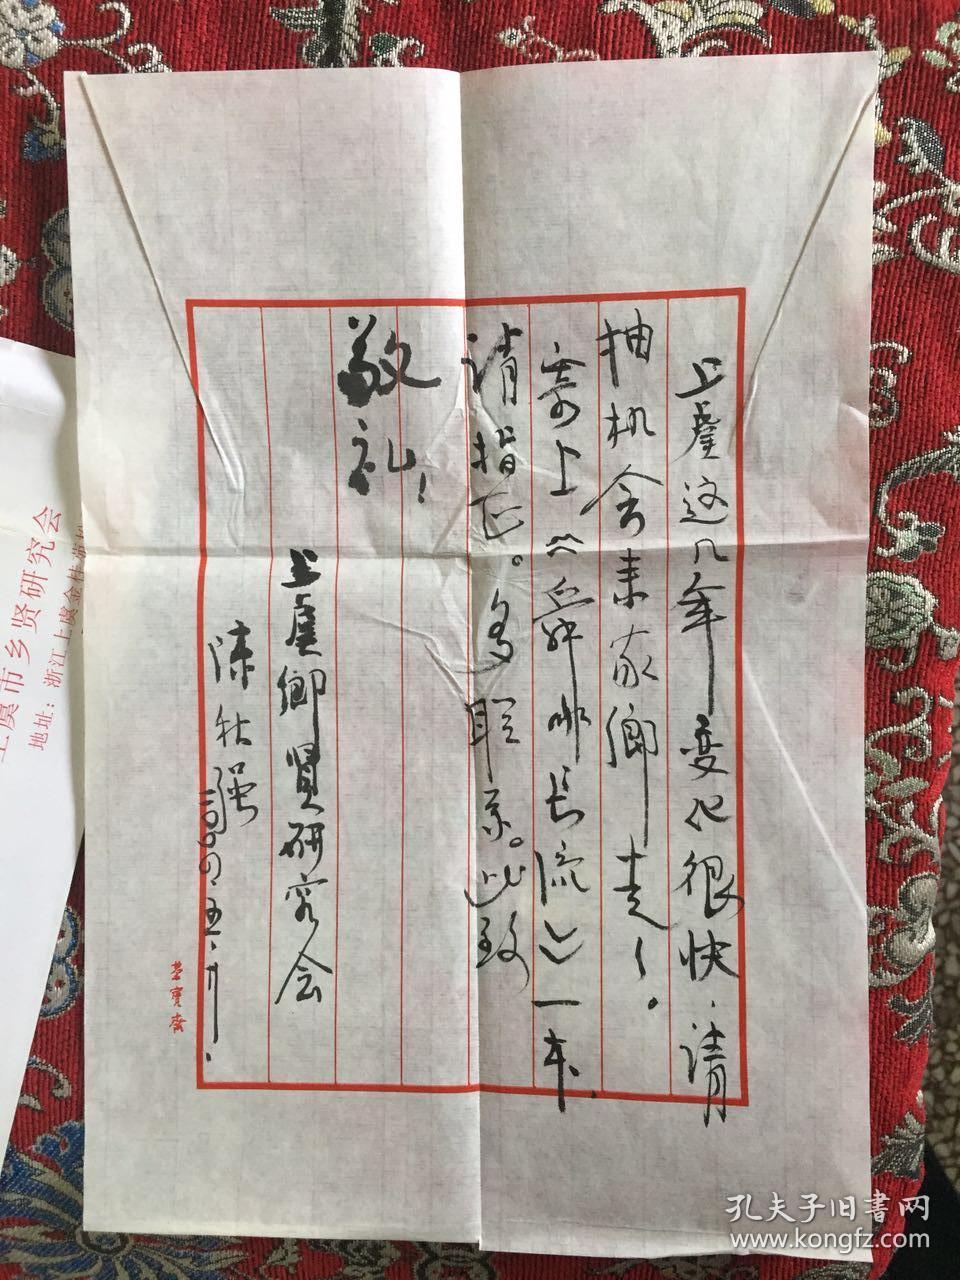 上虞这几年变化很快，请
抽机会来家乡走走。
寄上《舜水长流》一本，
请指正。多联系。此致
敬礼！
上虞鄉賢研究会
陈秋强
二〇〇四.五.廿.
荣寶斋
上虞市乡贤研究会
地址：浙江上虞金
孔夫子旧书网
www.kongfz.com